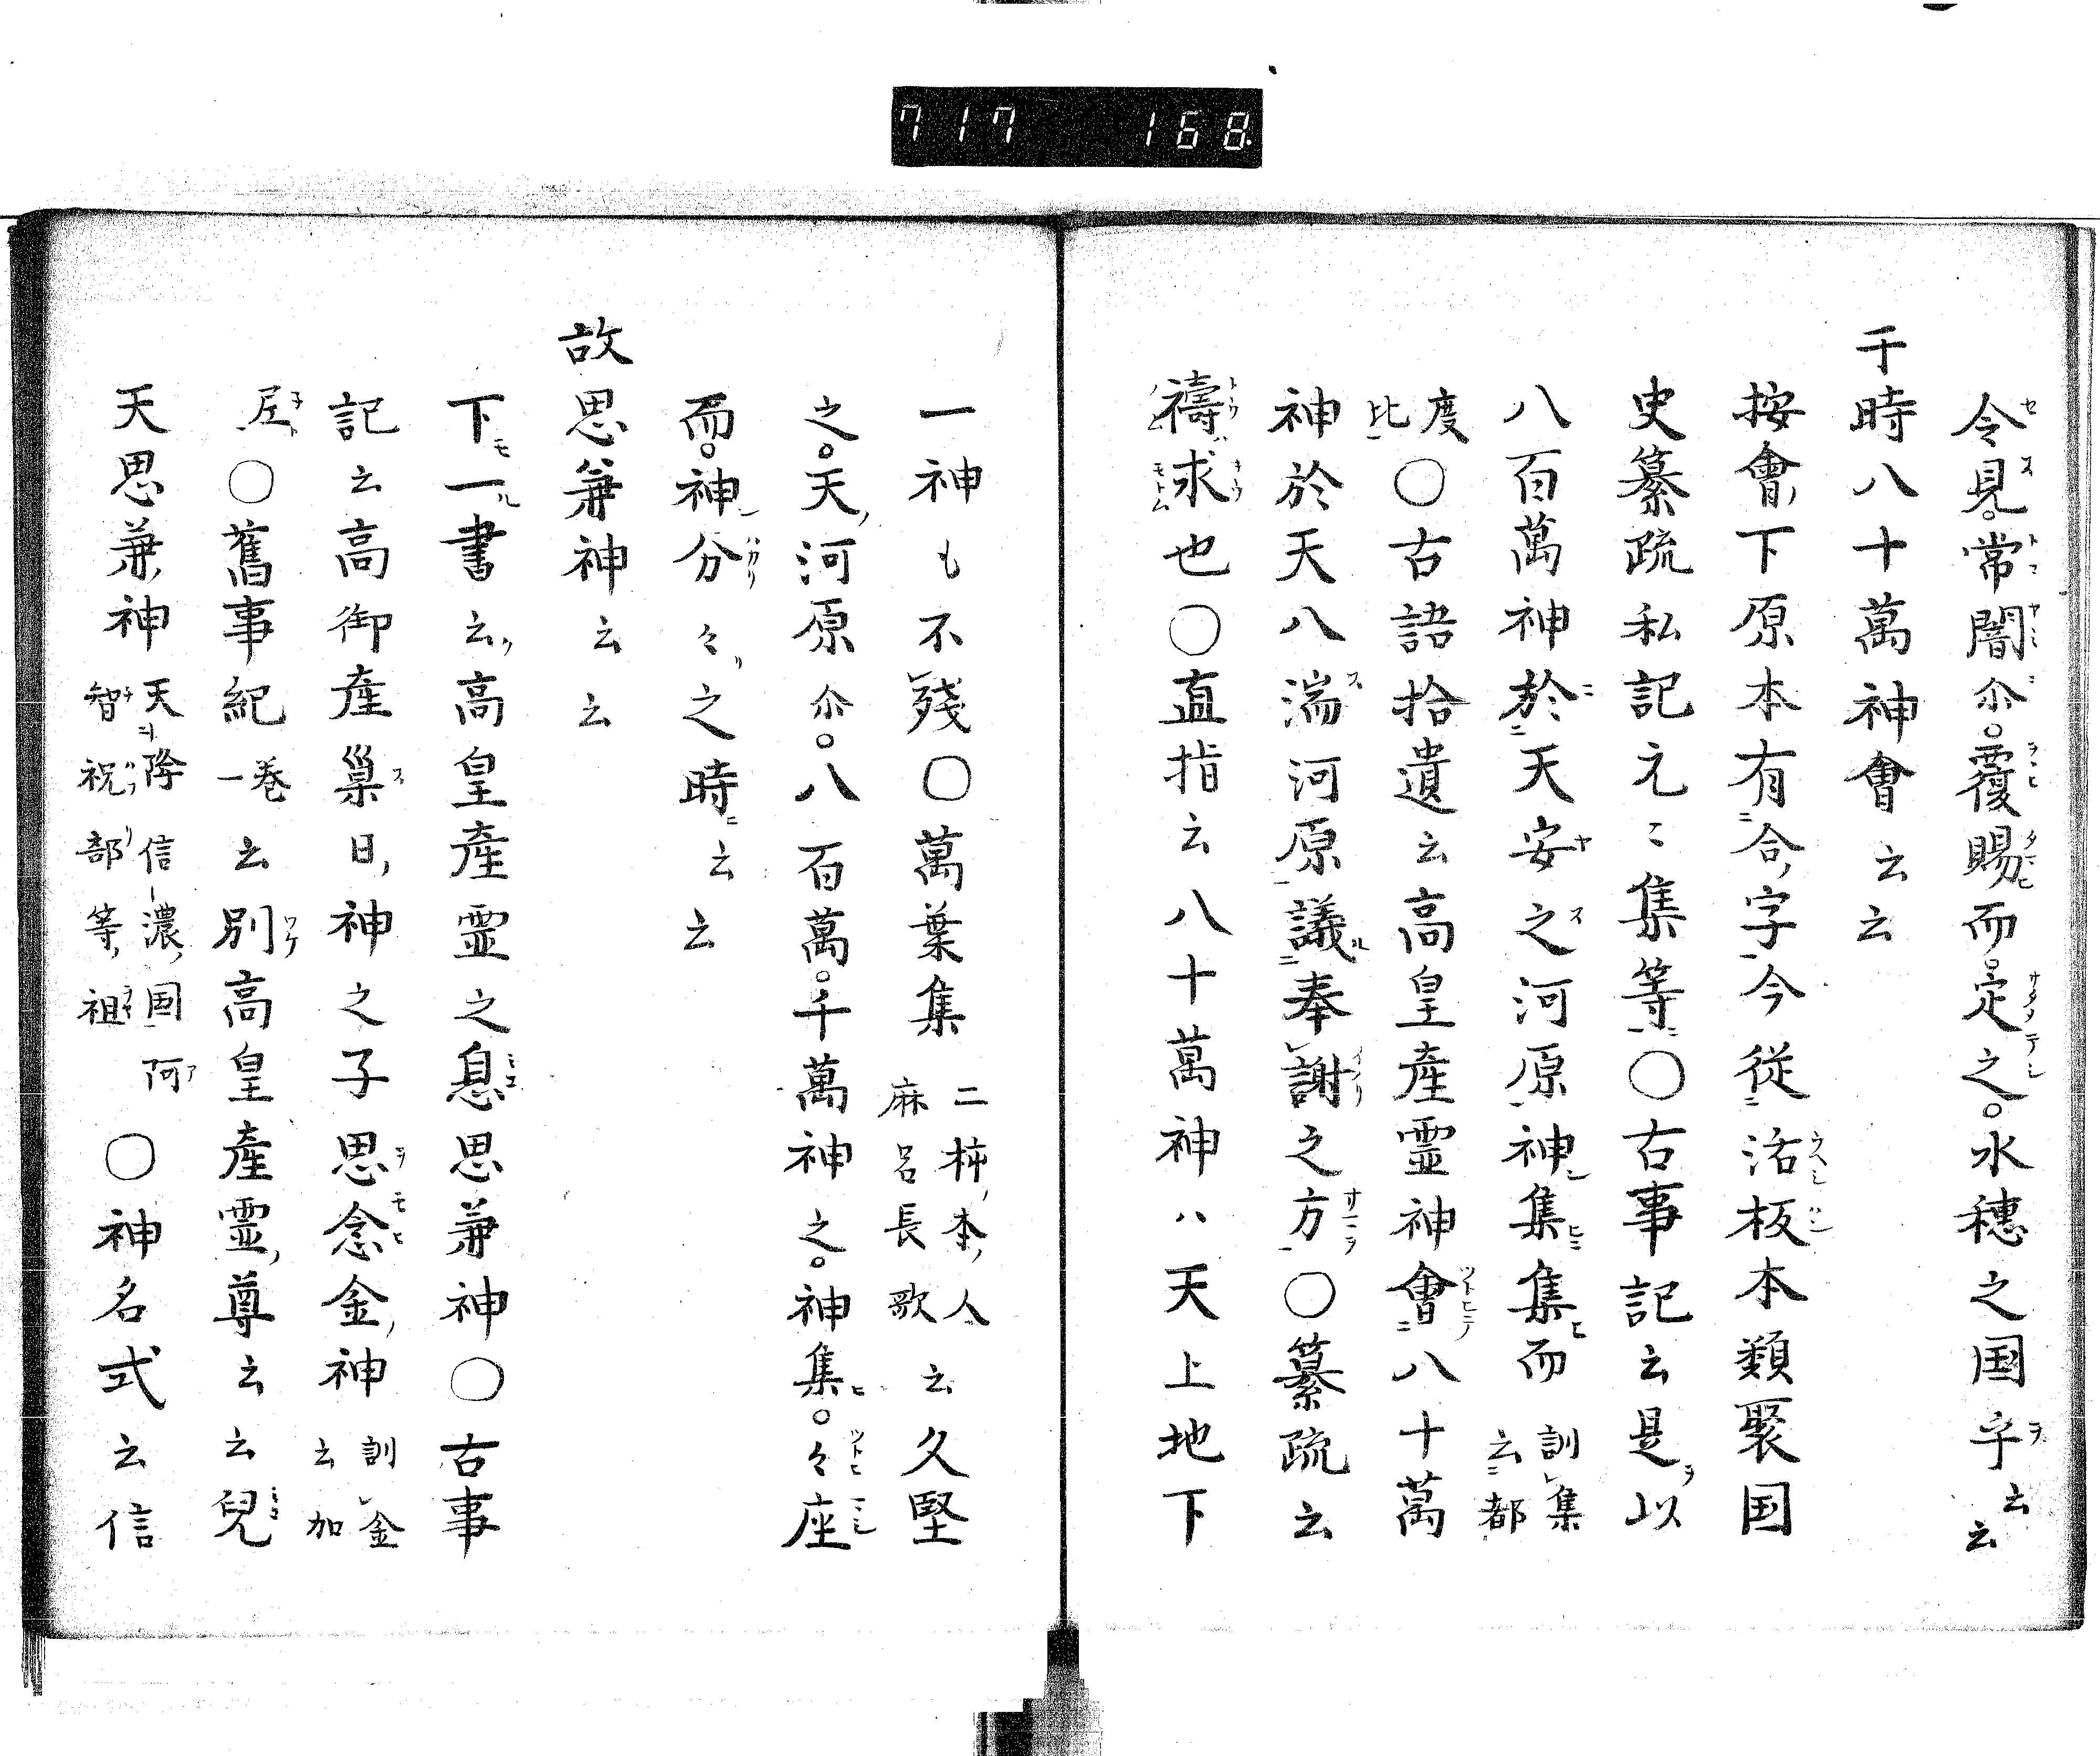 717 168
令見。常闇尒。覆賜而。定之。水穂之国乎云云
于時八十萬神會云云
按會下原本有合字今従活板本類聚国
史纂疏私記元々集等〇古事記云是以
八百萬神於天安之河原神集集而訓集云都
度比〇古語拾遺云高皇産霊神會八十萬
神於天八湍河原議奉謝之方〇纂疏云
禱求也〇直指云八十萬神ハ天上地下
一神も不残〇萬葉集二柿本人麻呂長歌云久堅
之。天河原尒。八百萬。千萬神之。神集。々座
而。神分々之時云云
故思兼神云云
下一書云高皇産霊之息思兼神〇古事
記云高御産巣日神之子思念金神訓金云加
尼〇舊事紀一巻云別高皇産霊尊云云兒
天思兼神天降信濃国阿智祝部等祖〇神名式云信